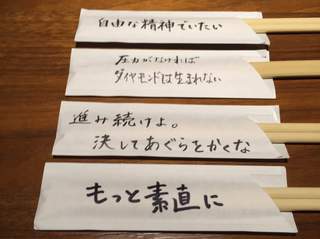 自由な精神でいたい
圧力がなければ
ダイヤモンドは生まれない
進み続けよ。
決してあぐらをかくな
もっと素直に